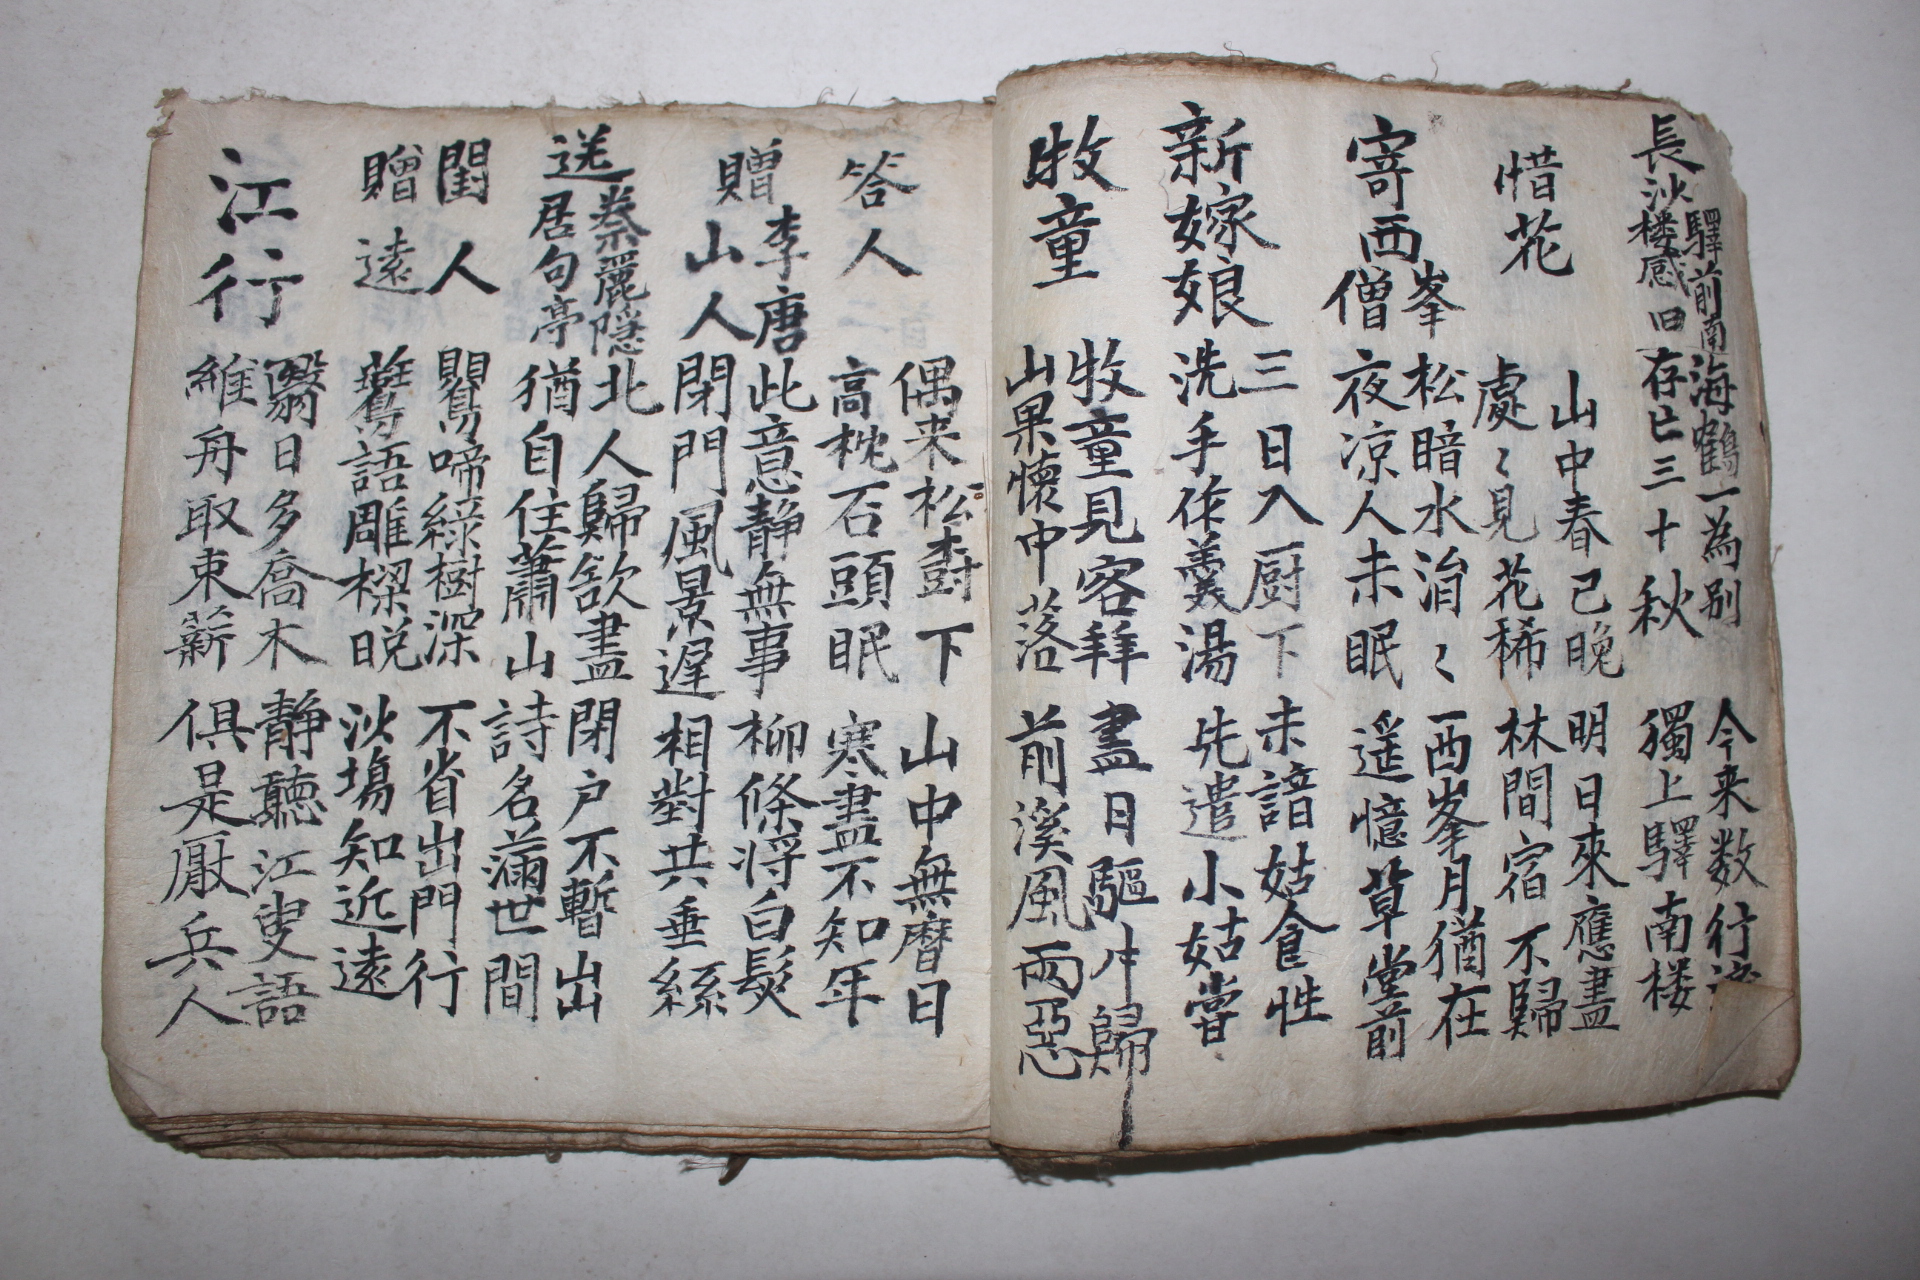 長沙驛前南楼感旧
海鶴一為别 今来数行
存亡三十秋 獨上驛南楼
惜花
山中春已晚 明日來應盡
處〻見花稀 林間宿不歸
寄西峯僧
松暗水涓〻 西峯月猶在
夜凉人未眠 遥憶草堂前
新嫁娘
三日入厨下 未諳姑食性
洗手作羹湯 先遣小姑嘗
牧童
牧童見客拜 盡日驅牛歸
山果懷中落 前溪風雨惡
答人
偶来松樹下 山中無曆日
高枕石頭眠 寒盡不知年
贈李唐山人
此意静無事 柳條将白髮
閉門風景遲 相對共垂絲
送蔡麗隠居句亭
北人歸欲盡 閉戶不暫出
猶自住蕭山 詩名滿世間
閨人贈遠
鸎啼綠樹深 不省出門行
鷰語雕樑晚 沙塲知近遠
江行
翳日多喬木 静聽江叟語
維舟取束薪 俱是厭兵人